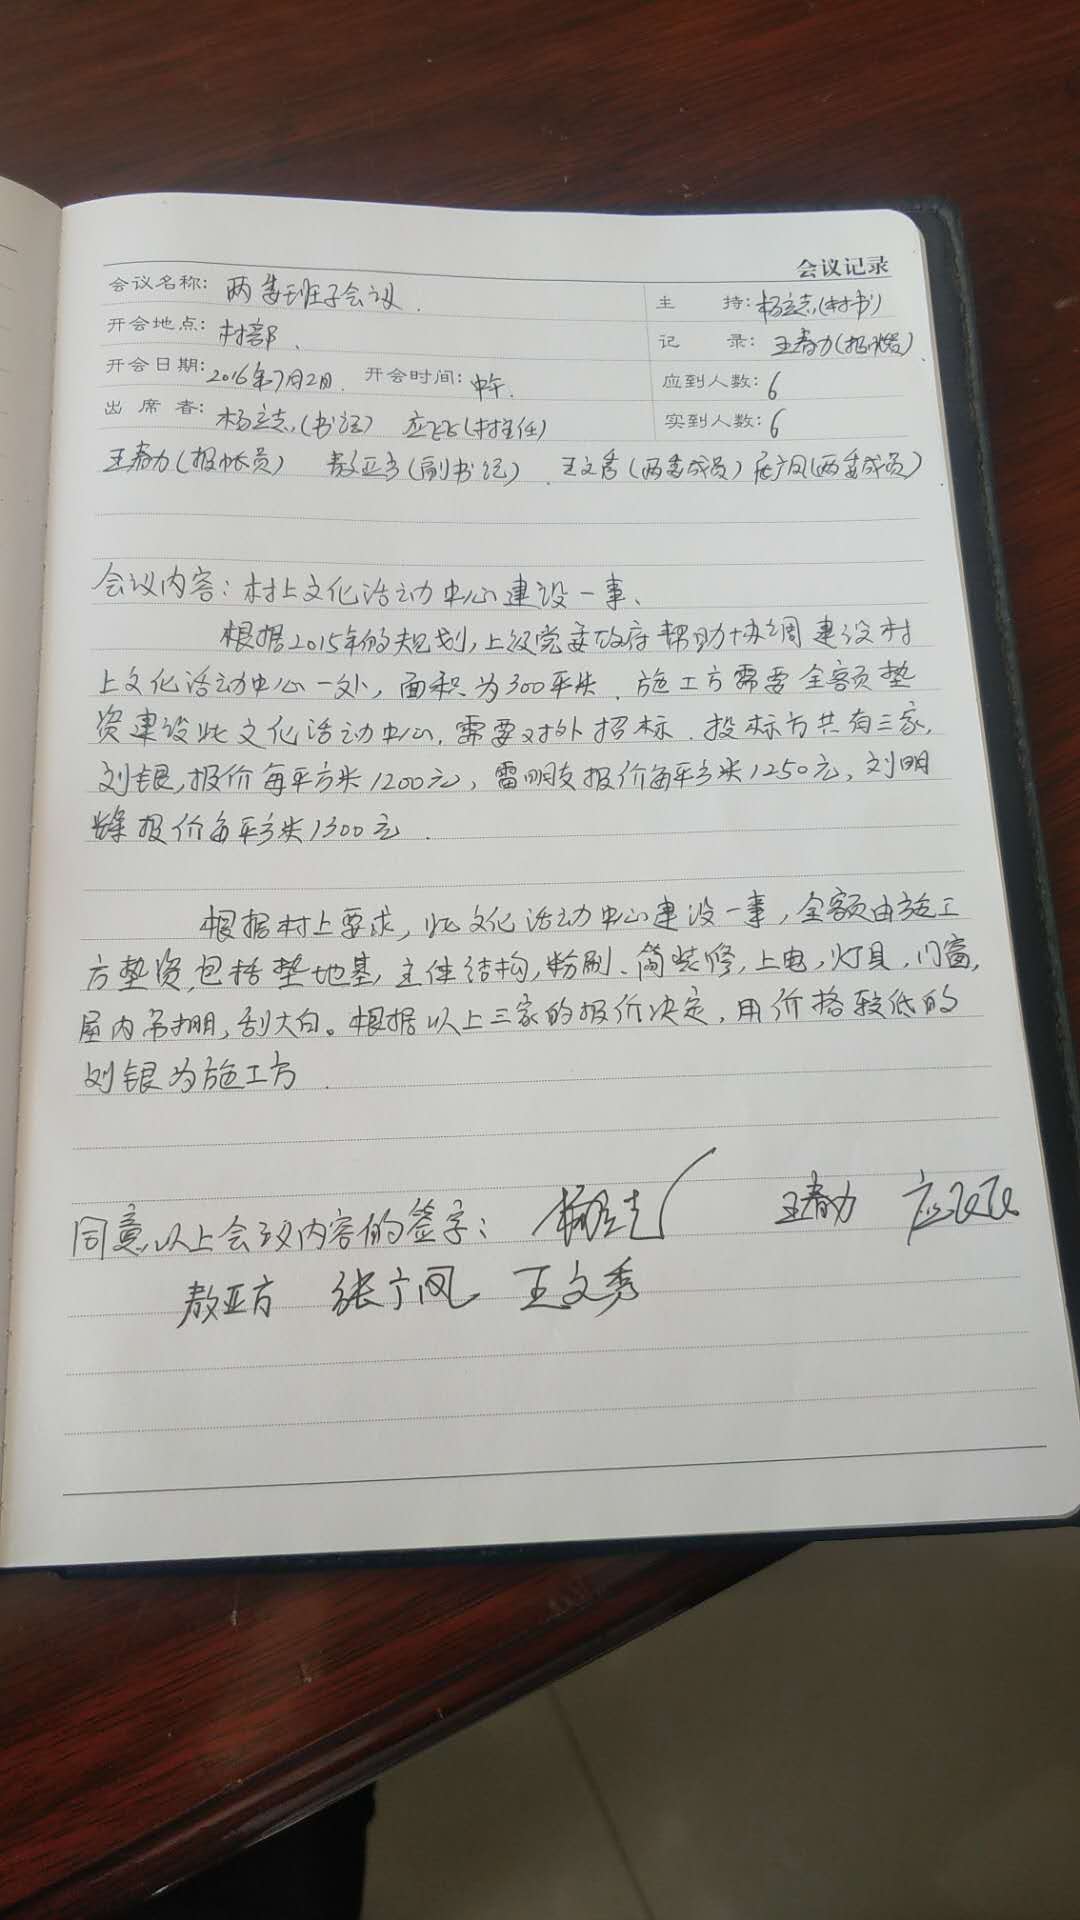 会议记录
会议名称: 两委班子会议.
主 持: 杨立志(村书)
开会地点: 村部、
记 录: 王春力(报账员).
开会日期: 2016年7月2日. 开会时间: 中午.
应到人数: 6
出席者: 杨立志(书记) 应飞飞(村主任)
实到人数: 6
王春力(报账员) 敖亚方(副书记). 王文秀(两委成员) 张广凤(两委成员)
会议内容: 村上文化活动中心建设一事、
根据2015年的规划,上级党委政府帮助协调建设村
上文化活动中心一处,面积为300平米.施工方需要全额垫
资建设此文化活动中心,需要对外招标.投标方共有三家,
刘银,报价每平方米1200元,雷明友报价每平方米1250元,刘明
报价每平方米1300元.
根据村上要求,此文化活动中心建设一事,全额由施工
方垫资,包括垫地基,主体结构,粉刷、简装修,上电,灯具,门窗,
屋内吊棚,刮大白。根据以上三家的报价决定,用价格较低的
刘银为施工方.
同意以上会议内容的签字: 杨立志 王春力 应飞飞
敖亚方 张广凤 王文秀